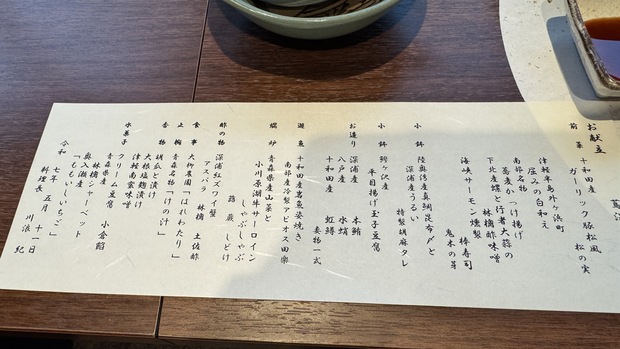 お献立
前菜 十和田産 ガーリック豚松風
松の実
津軽半島外ヶ浜町
屈みの白和え
南部名物 つけ揚げ
蕎麦と行者大蒜の
下北産螺と林檎酢味噌
海峡サーモン燻製
棒寿司
鬼木の芽
小鉢 陸奥湾産真鯛昆布〆と
深浦産うるい
特製胡麻タレ
小鉢 鰺ヶ沢産
平目揚げ玉子豆腐
お造り 深浦産 本鮪
八戸産 水蛸
十和田産 虹鱒
妻物一式
遊魚 十和田産岩魚姿焼き
南部産冷製アピオス田楽
燗炒 青森県産山菜と
小川原湖牛サーロイン
しゃぶしゃぶ
蕗 蕨 しどけ
酢の物 深浦紅ズワイ蟹
アスパラ 林檎 土佐酢
食事 大釈農園「はれわたり」
止椀 青森名物「けの汁」
香物 胡瓜と漬け
大根麹漬け
津軽南蛮味噌
水菓子 クリーム豆腐
青森県産 小倉餡
林檎シャーベット
奥入瀬産
「ももいしいちご」
令和 七年 五月 十一日
料理長 川浪 紀